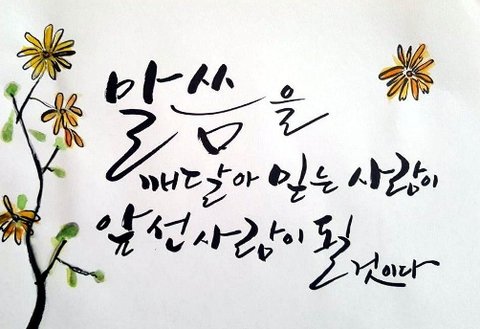 말씀을
깨달아 믿는 사람이
앞선 사람이 될 것이다